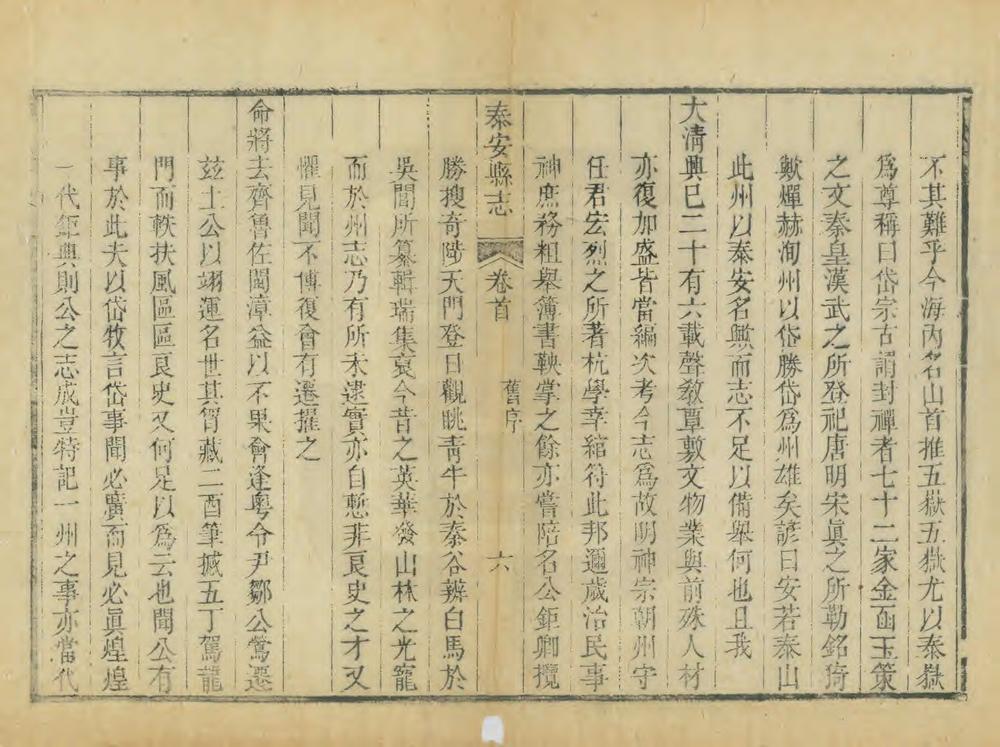 不其難乎今海內名山首推五嶽五嶽尤以泰嶽
爲尊稱曰岱宗古謂封禪者七十二家金函玉策
之文秦皇漢武之所登祀唐明宋眞之所勒銘猗
歟燀赫洵州以岱勝岱爲州雄矣諺曰安若泰山
此州以泰安名興而志不足以備舉何也且我
大清興已二十有六載聲敎覃敷文物業與前殊人材
亦復加盛皆當編次考今志爲故明神宗朝州守
任君宏烈之所著杭學幸綰符此邦邇歲治民事
神庶務粗舉簿書鞅掌之餘亦嘗陪名公鉅卿攬
泰安縣志 卷首 舊序 六
勝搜奇陟天門登日觀眺靑牛於秦谷辨白馬於
吳閶所纂輯瑞集裒今昔之英華發山林之光寵
而於州志乃有所未逮實亦自慙非良史之才又
懼見聞不博復會有遷擢之
命將去齊魯佐閩漳益以不果會逢粵令尹鄒公鶯遷
兹土公以翊運名世其胷藏二酉筆摵五丁駕龍
門而軼扶風區區良史又何足以爲云也聞公有
事於此夫以岱牧言岱事聞必廣而見必眞煌煌
一代鉅典則公之志成豈特記一州之事亦當代